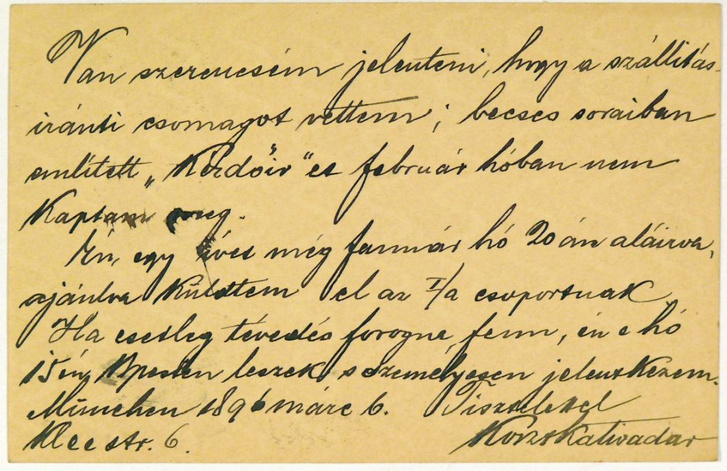 Van szerencsém jelenteni, hogy a szállitás-
iránti csomagot vettem; becses soraiban
említett „Kérdőív"et február hóban nem
kaptam meg.
Én, egy ívet még január hó 20án aláirva,
ajánlva küldtem el az I/a csoportnak.
Ha esetleg tévedés forogna fenn, én e hó
15éig Bpesten leszek s személyesen jelentkezem.
München 1896 márc 6. Tisztelettel
Kleestr. 6. Koszta tivadar